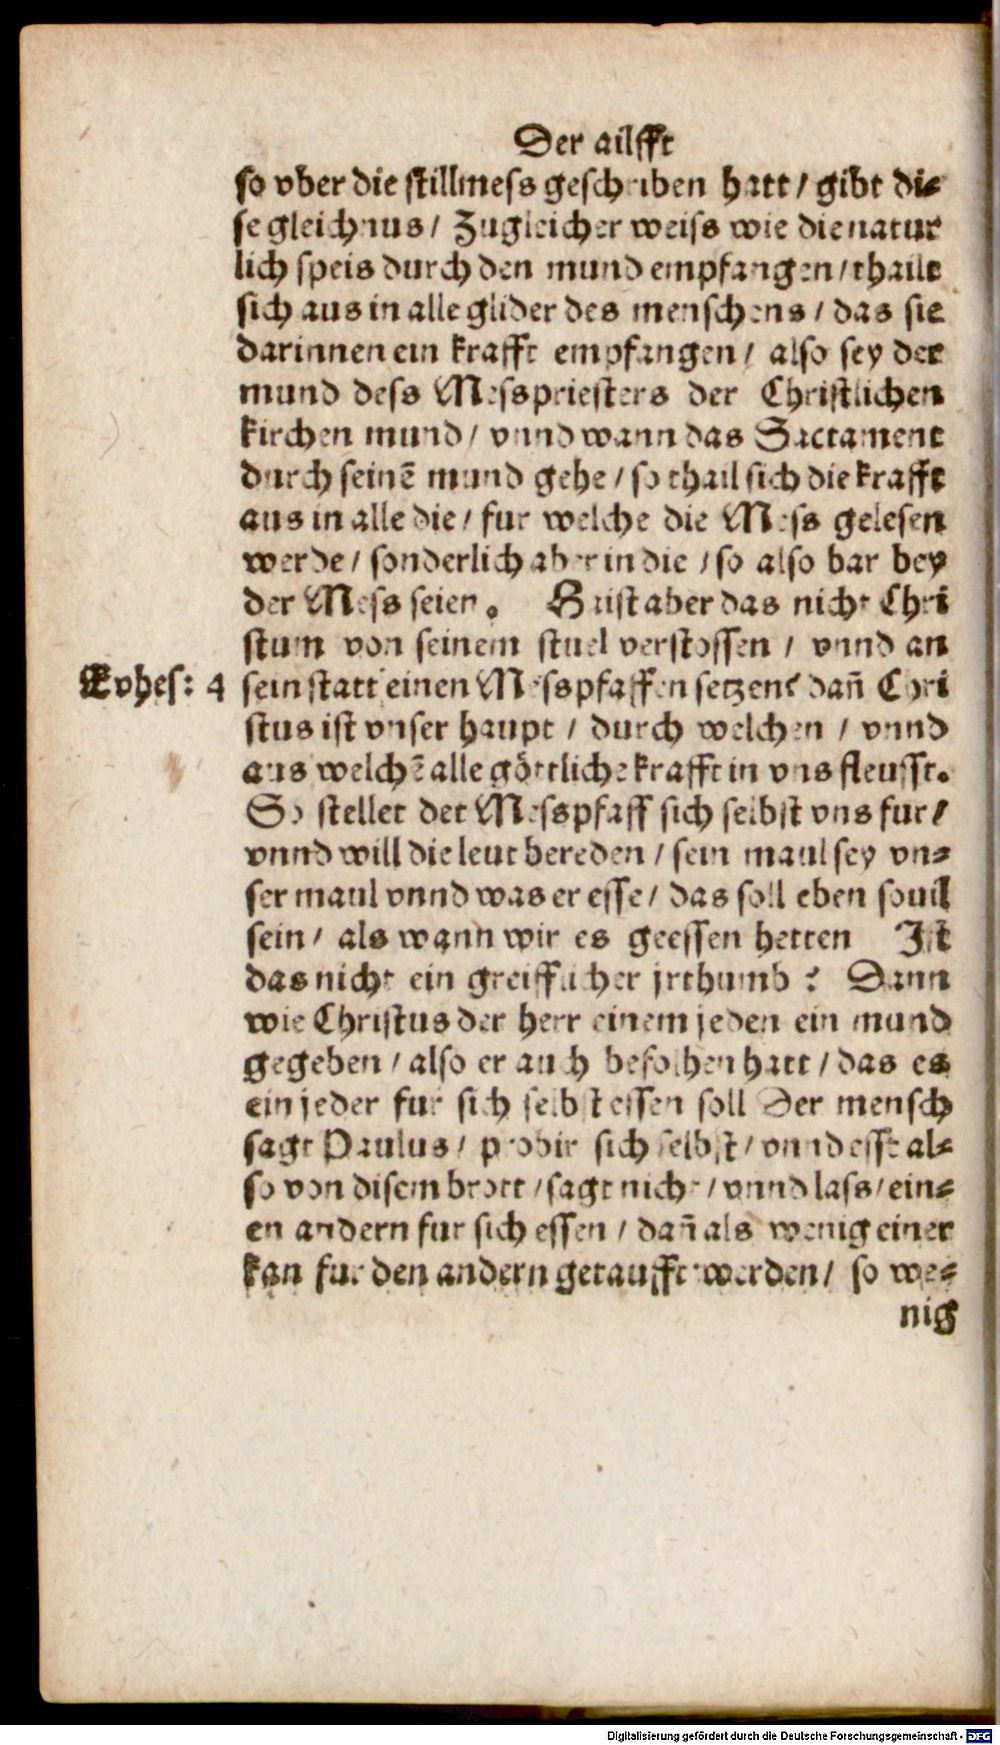 Der ailfft
so vber die stillmess geschriben hatt / gibt di-
se gleichnus / Zugleicher weiss wie die natur
lich speis durch den mund empfangen / thaile
sich aus in alle glider des menschens / das sie
darinnen ein krafft empfangen / also sey der
mund dess Messpriesters der Christlichen
kirchen mund / vnnd wann das Sacrament
durch seinē mund gehe / so thail sich die krafft
aus in alle die / fur welche die Mess gelesen
werde / sonderlich aber in die / so also bar bey
der Mess seien. Haist aber das nicht Chri
stum von seinem stuel verstossen / vnnd an
Ephes: 4 sein statt einen Messpfaffen setzen? dañ Chri
stus ist vnser haupt / durch welchen / vnnd
aus welchē alle göttliche krafft in vns fleusst.
So stellet der Messpfaff sich selbst vns fur /
vnnd will die leut bereden / sein maul sey vn-
ser maul vnnd was er esse / das soll eben souil
sein / als wann wir es geessen hetten Ist
das nicht ein greifflicher jrthumb? Dann
wie Christus der herr einem jeden ein mund
gegeben / also er auch befolhen hatt / das es
ein jeder fur sich selbst essen soll Der mensch
sagt Paulus / probir sich selbst / vnnd esse al-
so von disem brott / sagt nicht / vnnd lass / ein-
en andern fur sich essen / dañ als wenig einer
kan fur den andern getaufft werden / so we-
nig
Digitalisierung gefördert durch die Deutsche Forschungsgemeinschaft - DFG